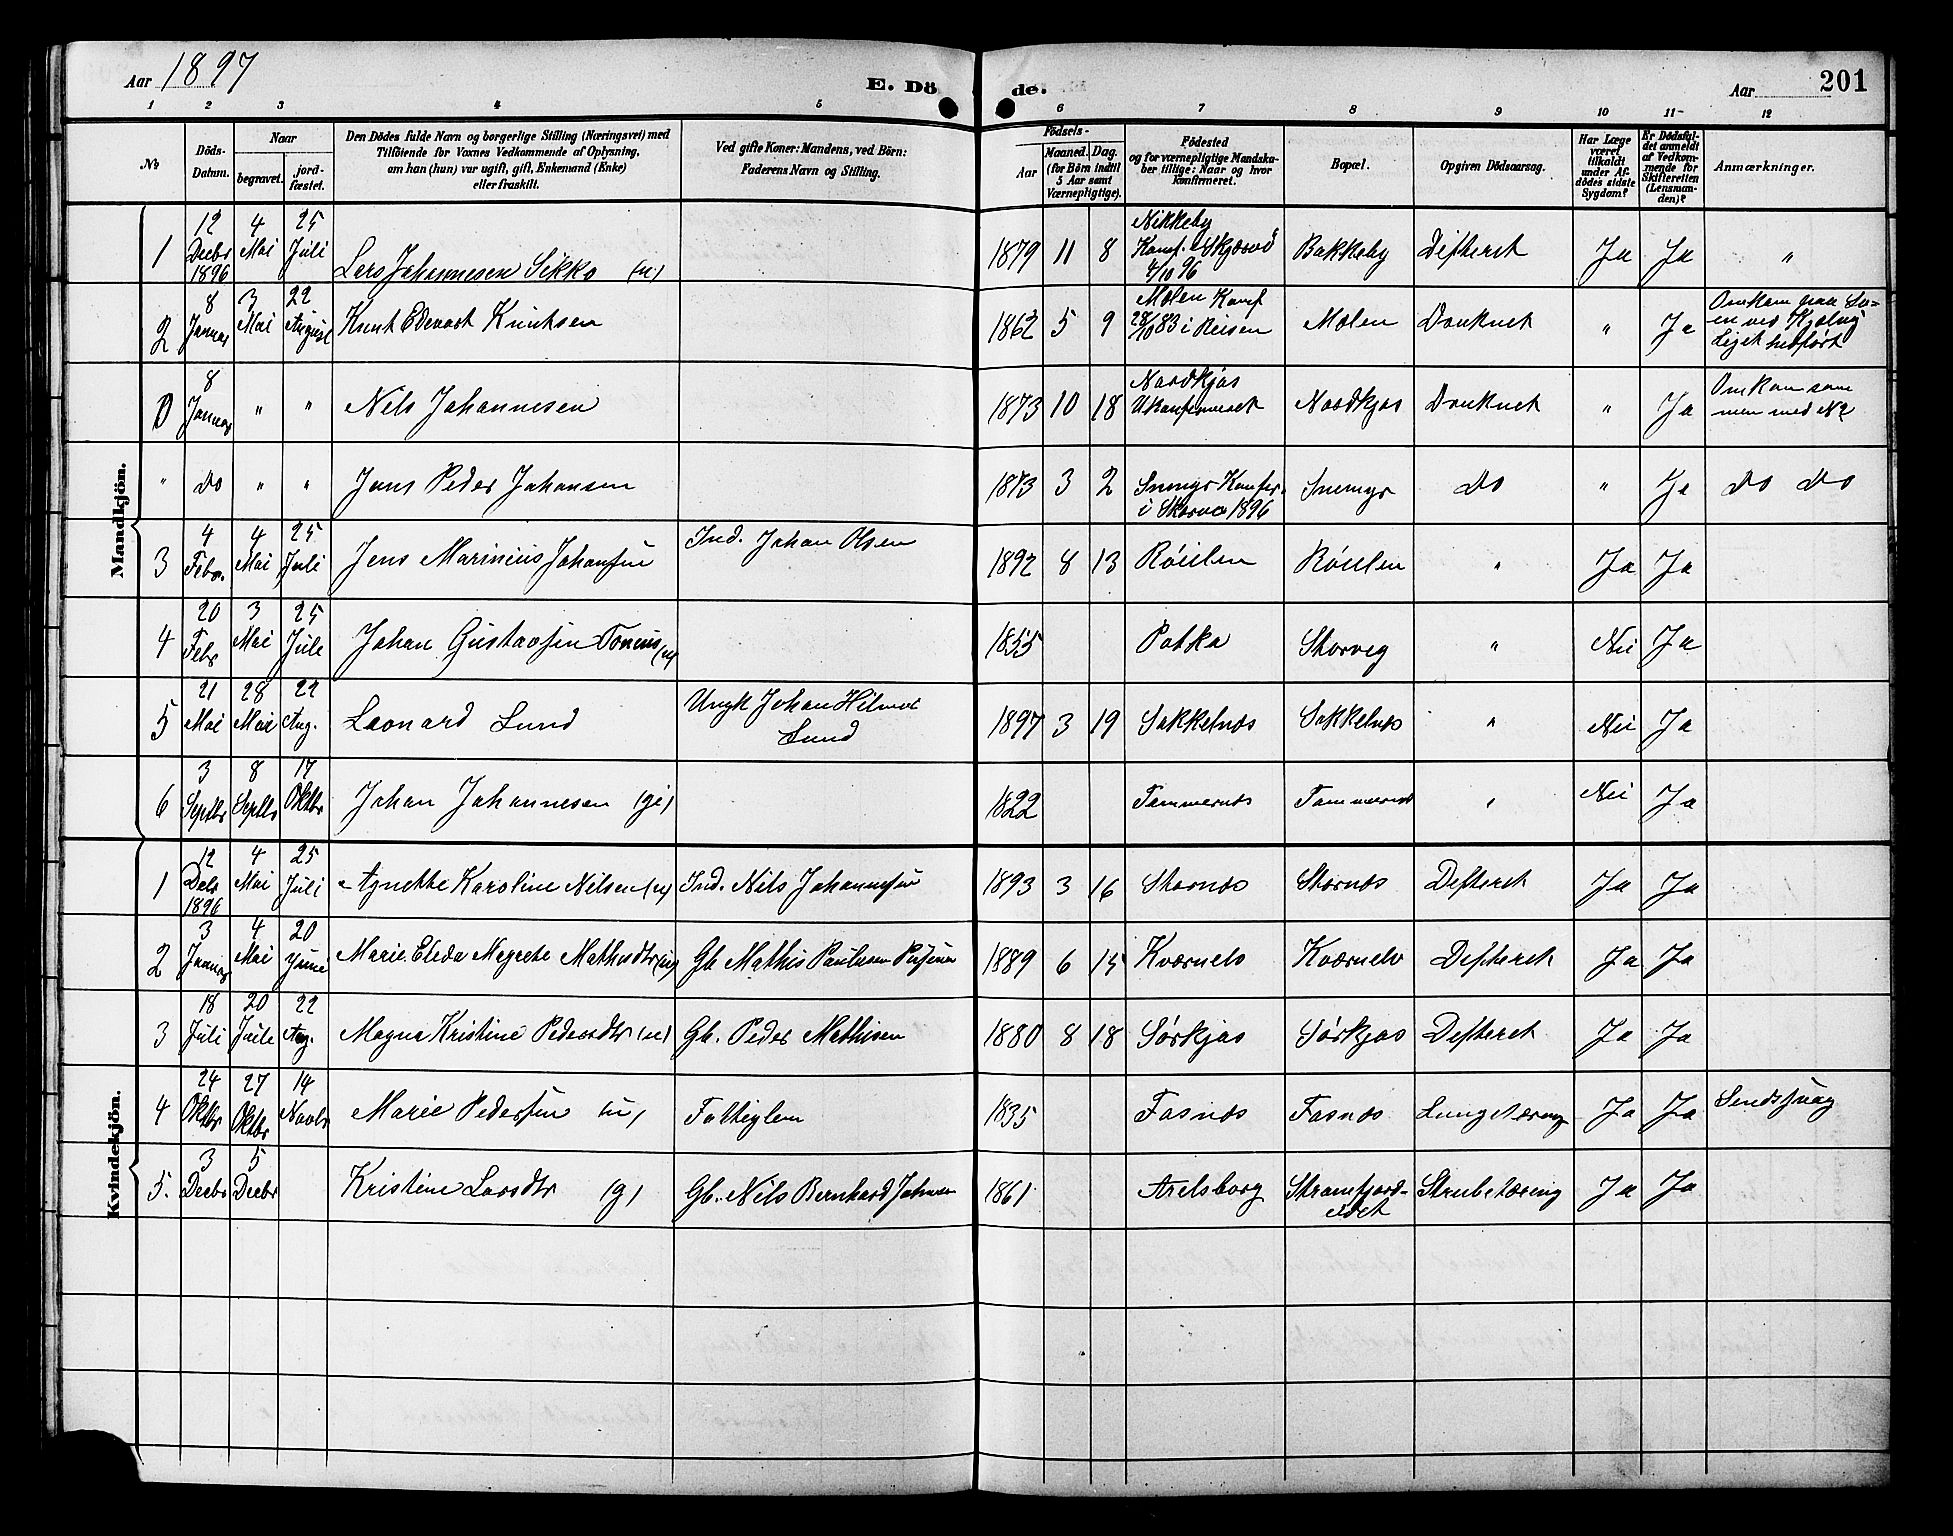 Aar 1897
E. Döde.
Aar
201
1 2 3 4 5 6 7 8 9 10 11 12
No
Döds-Datum.
Naar
begravet.
jord-fæstet.
Den Dödes fulde Navn og borgerlige Stilling (Næringsvei) med
Tilföiende for Voxnes Vedkommende af Oplysning,
om han (hun) var ugift, gift, Enkemand (Enke)
eller fraskilt.
Ved gifte Koner: Mandens, ved Börn:
Faderens Navn og Stilling.
Födsels-
Aar
Maaned. Dag.
(for Börn indtil
5 Aar samt
Værnepligtige).
Födested
og for værnepligtige Mandska-
ber tillige: Naar og hvor
konfirmeret.
Bopæl.
Opgiven Dödsaarsag.
Har Læge
været
tilkaldt
under Af-
dödes sidste
Sygdom?
Er Dödsfal-
det anmeldt
af Vedkom-
mende for
Skifteretten
(Lensman-
den)?
Anmærkninger.
Mandkjön.
1 12 Decbr 1896 4 Mai 25 Juli Lars Johannesen Sikko (u) 1879 11 8 Nikkeby Konf. i Skjærvö 4/10 96 Bakkeby Difterit Ja Ja "
2 8 Januar 3 Mai 22 August Knut Edevart Knutsen 1862 5 9 Molen Konf 83 i Reisen Molen Druknet " Ja Omkom paa Sø-
en ved Kjølvig
Liget hidført
0 8 Januar " " Nils Johannesen 1873 10 18 Nordkjos Ukonfirmeret Nordkjos Druknet " Ja Omkom sam
men med N2
" do " " Jens Peder Johansen 1873 3 2 Snemyr Konfir. i Skorvø 1896 Snemyr do " Ja do do
3 4 Febr. 4 Mai 25 Juli Jens Marinius Johansen Ind. Johan Olsen 1892 8 13 Röielen Röielen " Ja Ja
4 20 Febr 3 Mai 25 Jule Johan Gustavsen (u) 1855 Potka Storvig " Nei Ja
5 21 Mai 28 Mai 22 Aug. Leonard Lund Ungk Johan Hilmar Lund 1897 3 19 Sokkelnes Sokkelnes " Nei Ja
6 3 Septbr 8 Septbr 17 Oktbr Johan Johannesen (gi) 1822 Tømmernes Tømmernes " Nei Ja
Kvindekjön.
1 12 Decbr 1896 4 Mai 25 Juli Agnethe Karoline Nilsen (u) Ind. Nils Johannesen 1893 3 16 Stornes Stornes Defterit Ja Ja
2 3 Januar 4 Mai 20 Juni Marie Elida Magrete Mathisdtr (u) Gb Mathis Paulusen 1889 6 15 Kværnelv Kværnelv Defterit Ja Ja
3 18 Juli 20 Jule 22 Aug. Magna Kristine Pedersdtr (u) Gb. Peder Mathisen 1880 8 18 Sørkjos Sørkjos Defterit Ja Ja
4 24 Oktbr 27 Oktbr 14 Novbr Marie Pedersen (u) Fattiglem 1835 Fosnes Fosnes Lungetæring Ja Ja Sindssvag
5. 3 Decbr 5 Decbr Kristine Larsdtr (g) Gb. Nils Bernhard Johnsen 1861 Arelsborg Stramfjord-eidet Strubetæring Ja Ja